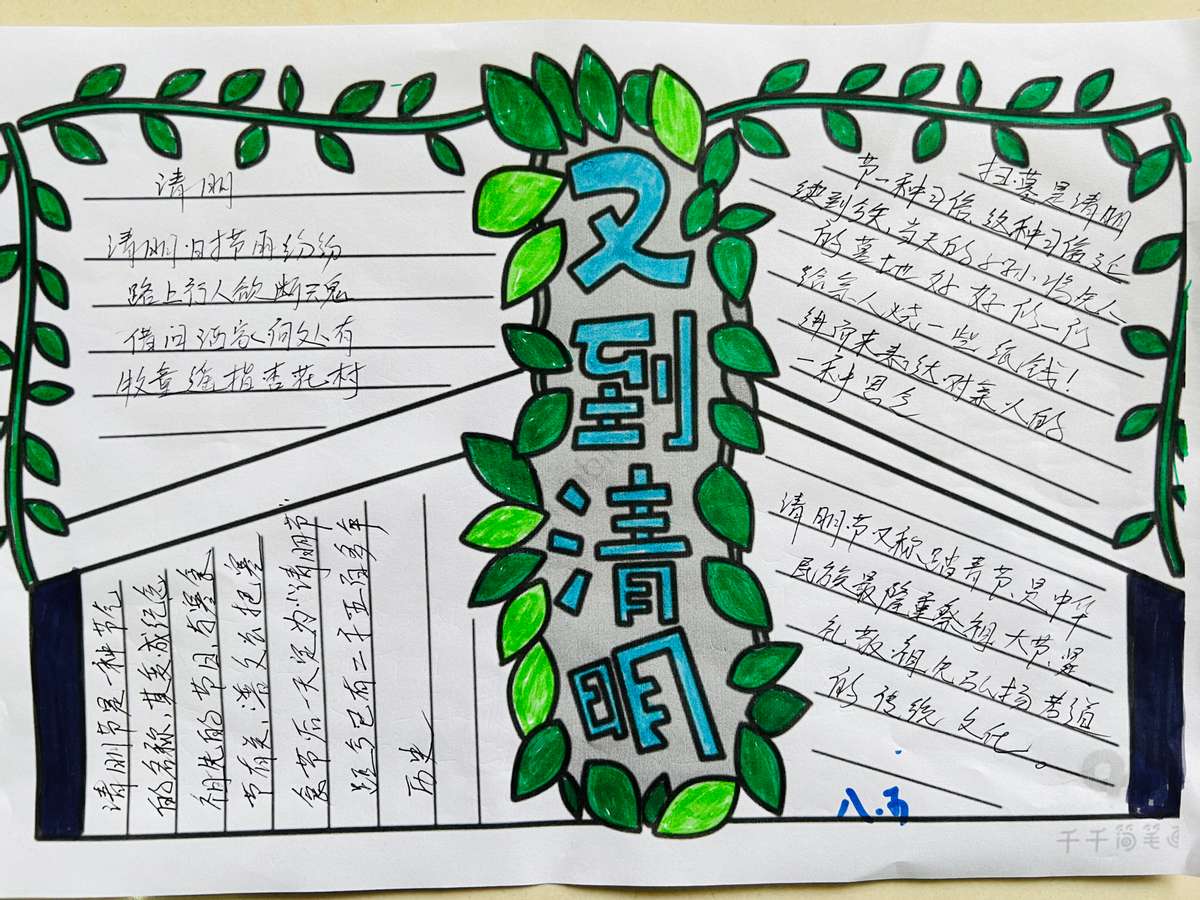 又到清明
清明
清明时节雨纷纷
路上行人欲断魂
借问酒家何处有
牧童遥指杏花村
扫墓是清明
节一种习俗,这种习俗延
续到今天,当天的子孙将先人
的墓地好好修一行
给亲人烧一些纸钱!
进而来表达对亲人的
一种思念
清明节是一种节气
的名称,其变成纪念
祖先的节日,与寒食
节有关,晋文公把寒
食节后一天定为清明节
距今已有二千五百多年
历史
清明节又称踏青节,是中华
民族最隆重祭祖大节,是
礼敬祖先弘扬孝道
的传统文化。
八.五
千千简笔画